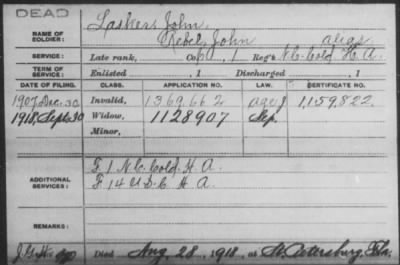 DEAD
NAME OF SOLDIER: Laskers, John.
Rebel, John alias
SERVICE: Late rank, Co. 1 Reg't N.C. Cold H. A.
TERM OF SERVICE: Enlisted , 1 Discharged , 1
DATE OF FILING. CLASS. APPLICATION NO. LAW. CERTIFICATE NO.
1907, Dec. 30 Invalid, 1369,662 1,159,822
1918, Sept. 30 Widow, 1128907 Sep.
Minor,
ADDITIONAL SERVICES: F 1 N.C. Cold. H. A.
F 14 U.S.C. H A.
REMARKS:
Died Aug. 28, 1918, at St. Petersburg, Fla.